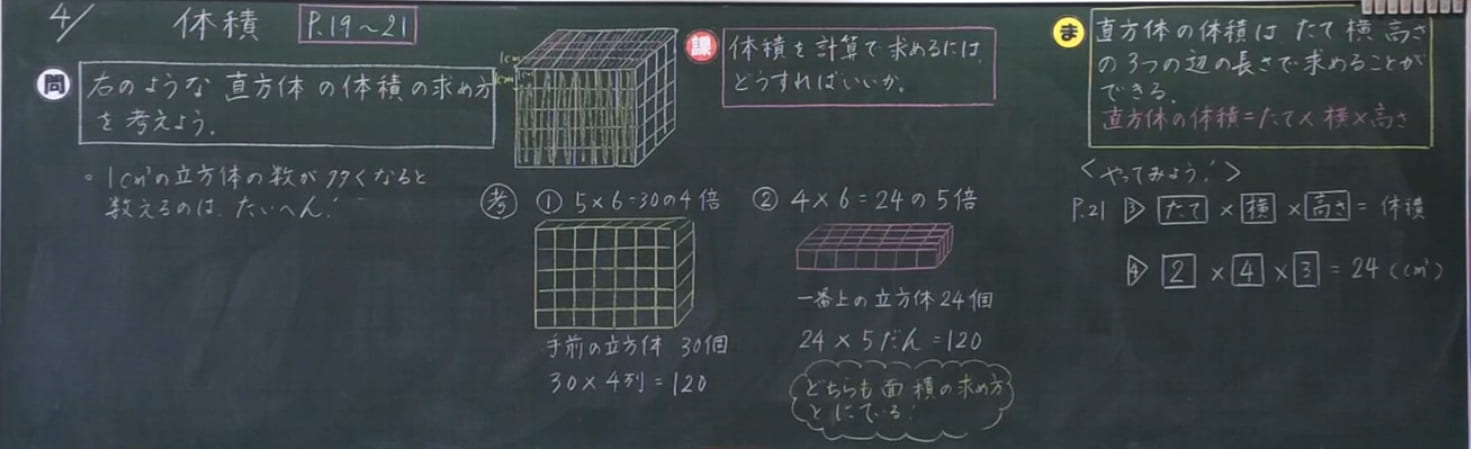 4/
体積
P.19~21
問
右のような直方体の体積の求め方
を考えよう。
。1cm³の立方体の数が多くなると
数えるのは、たいへん!
1cm
1cm
課
体積を計算で求めるには、
どうすればいいか。
考
① 5×6=30の4倍
手前の立方体 30個
30×4列=120
② 4×6=24の5倍
一番上の立方体24個
24×5だん=120
どちらも面積の求め方
とにている!
ま
直方体の体積は たて 横 高さ
の3つの辺の長さで求めることが
できる。
直方体の体積=たて×横×高さ
<やってみよう!>
P.21 ③ たて × 横 × 高さ = 体積
④ 2 × 4 × 3 = 24 (cm³)